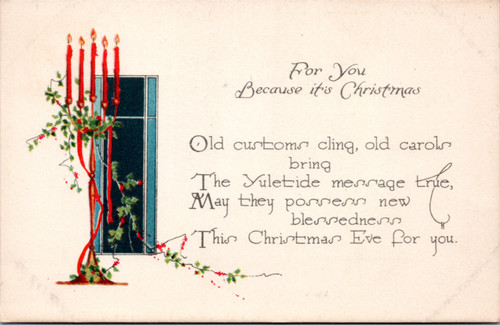 For You
Because it's Christmas
Old customs cling, old carols
bring
The Yuletide message true,
May they possess new
blessedness
This Christmas Eve for you.